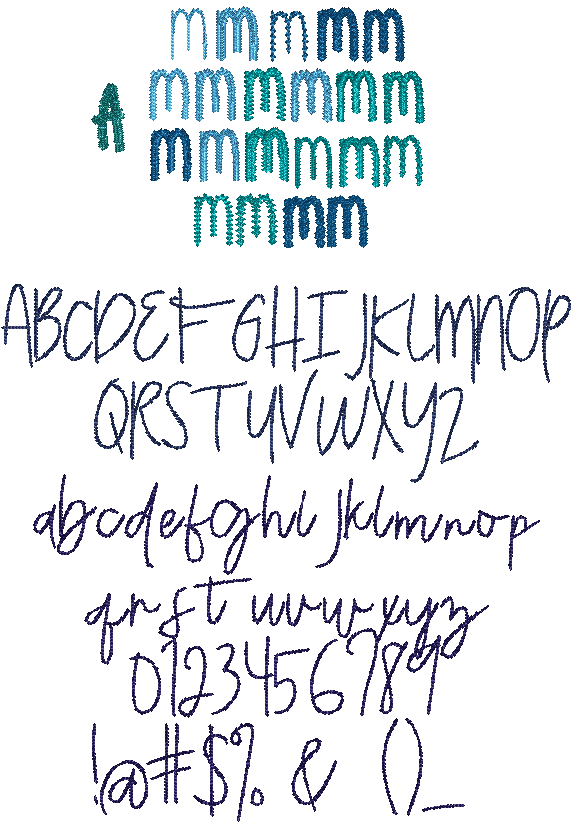 mmmmm
mmmmmm
A
mmmmmm
mmmm
ABCDEF GHI JKLMNOP
QRSTUVWXYZ
abcdefghi jklmnop
qrst uvwxyz
0123456789
!@#$% & ()_